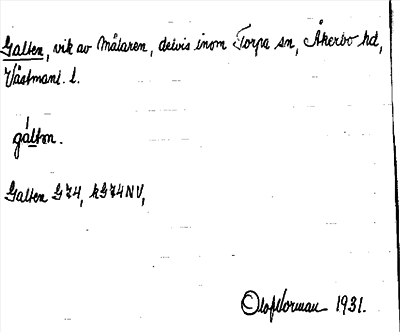 Galten, vik av Mälaren, delvis inom Torpa sn, Åkerbo hd,
Västmanl. l.
gáltən.
Galten G74, kG74NV,
Olof Norman 1931.